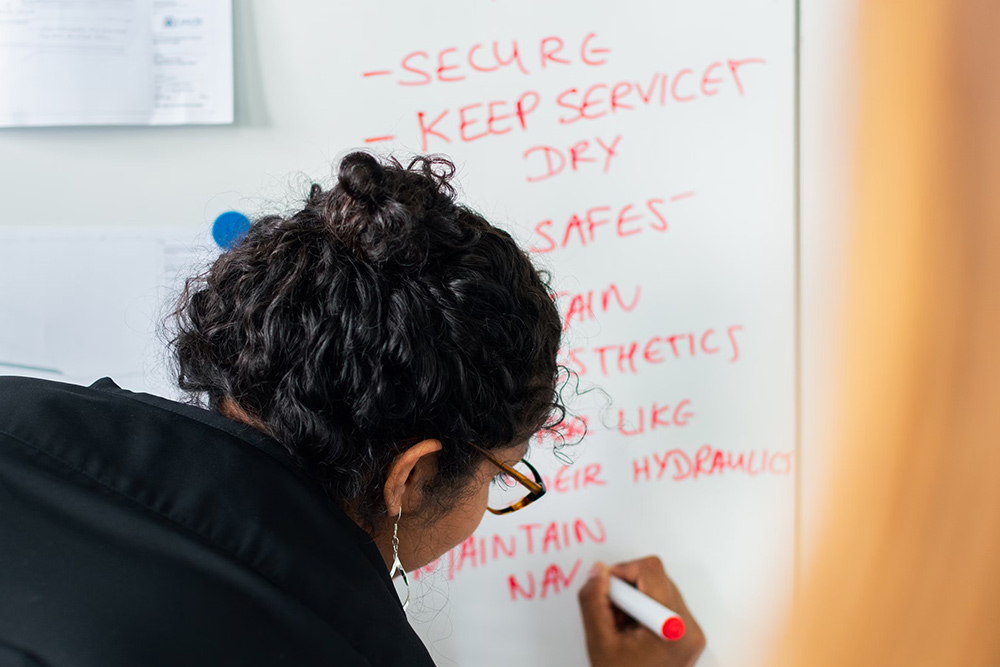 - SECURE
- KEEP SERVICET
DRY
SAFES-
TAIN
STHETICS
LIKE
EIR HYDRAULICS
MAINTAIN
NAV